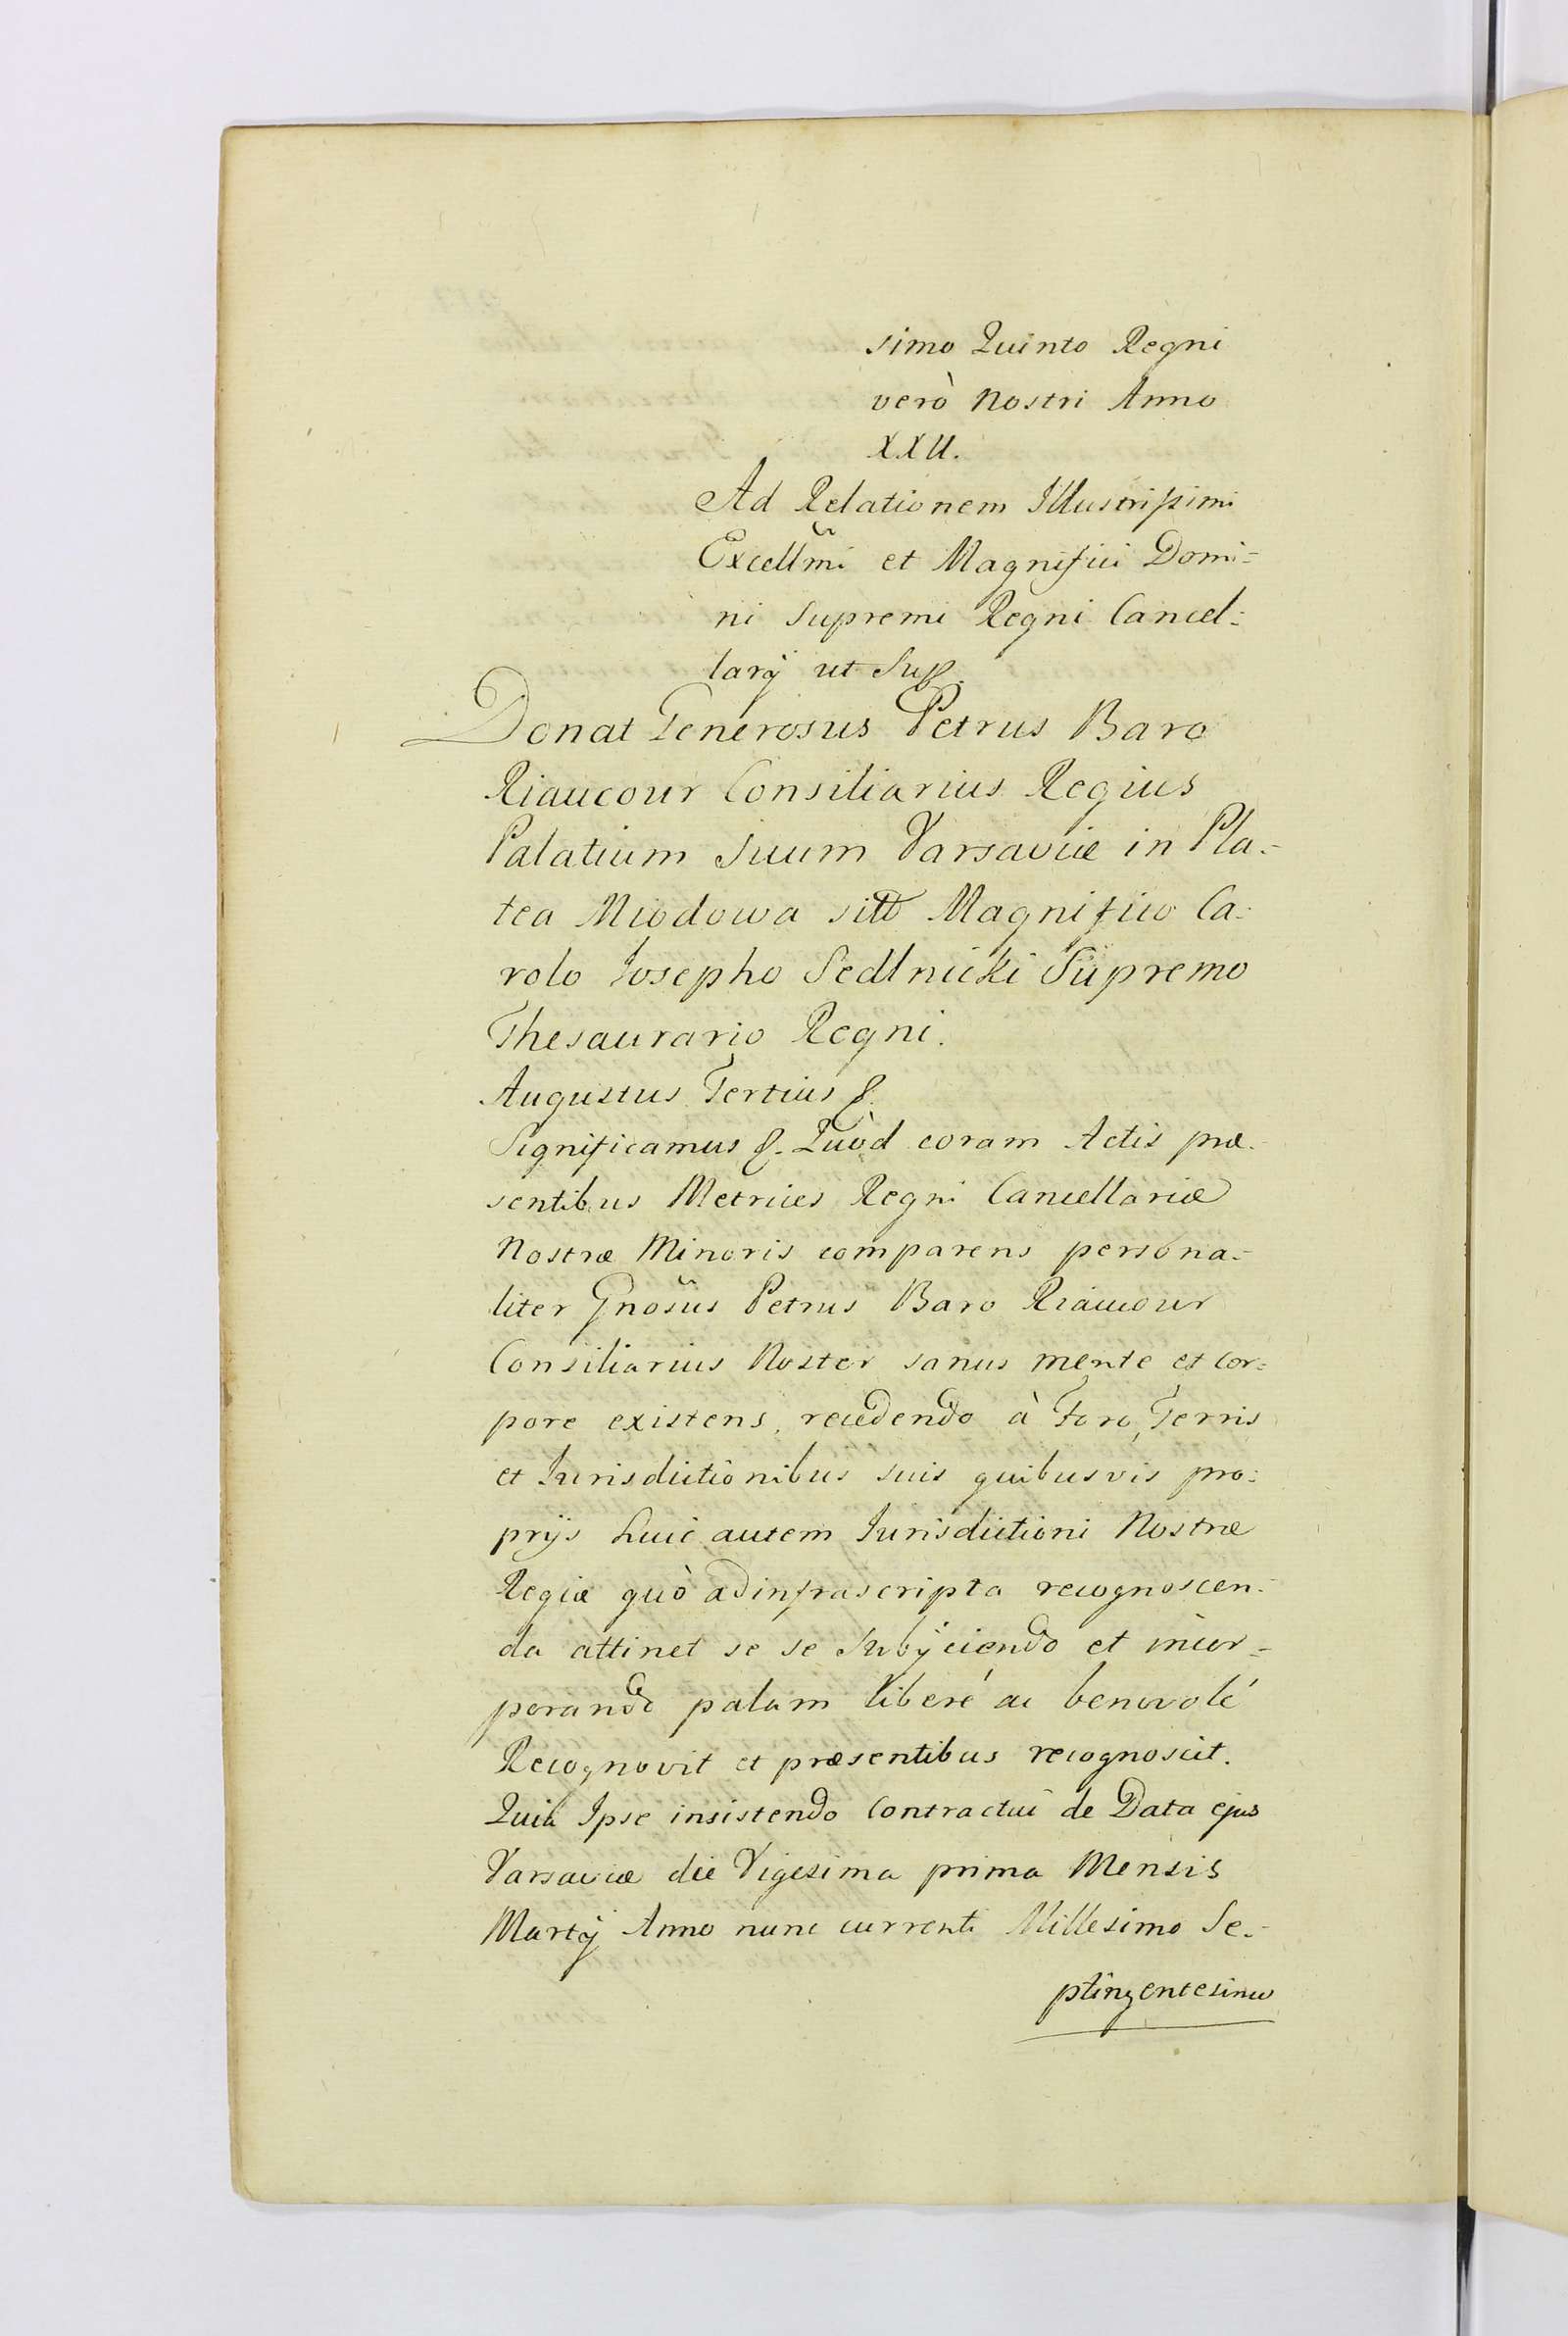 simo Quinto Regni
verò Nostri Anno
XXII.
Ad Relationem Illustrissimi
Excellm̃i et Magnifici Domi=
ni Supremi Regni Cancel=
larÿ ut Sup.
Donat Generosus Petrus Baro
Riaucour Consiliarius Regius
Palatium Suum Varsaviæ in Pla=
tea Miodowa sitt Magnifico Ca=
rolo Josepho Sedlnicki Supremo
Thesaurario Regni.
Augustus Tertius &.
Significamus &. Quòd coram Actis præ=
sentibus Metrices Regni Cancellariæ
Nostræ Minoris comparens persona=
liter Gnosũs Petrus Baro Riaucour
Consiliarius Noster sanus mente et cor=
pore existens, recedendo à Foro, Terris
et Jurisdictionibus suis quibusvis pro=
prijs huic autem Jurisdictioni Nostræ
Regiæ quò ad infrascripta recognoscen=
da attinet se se subÿciendo et incor=
porando palam liberé ac benevolé
Recognovit et præsentibus recognoscit.
Quia Ipse insistendo Contractui de Data ejus
Varsaviæ die Vigesima prima Mensis
Martÿ Anno nunc currenti Millesimo Se=
ptingentesimo